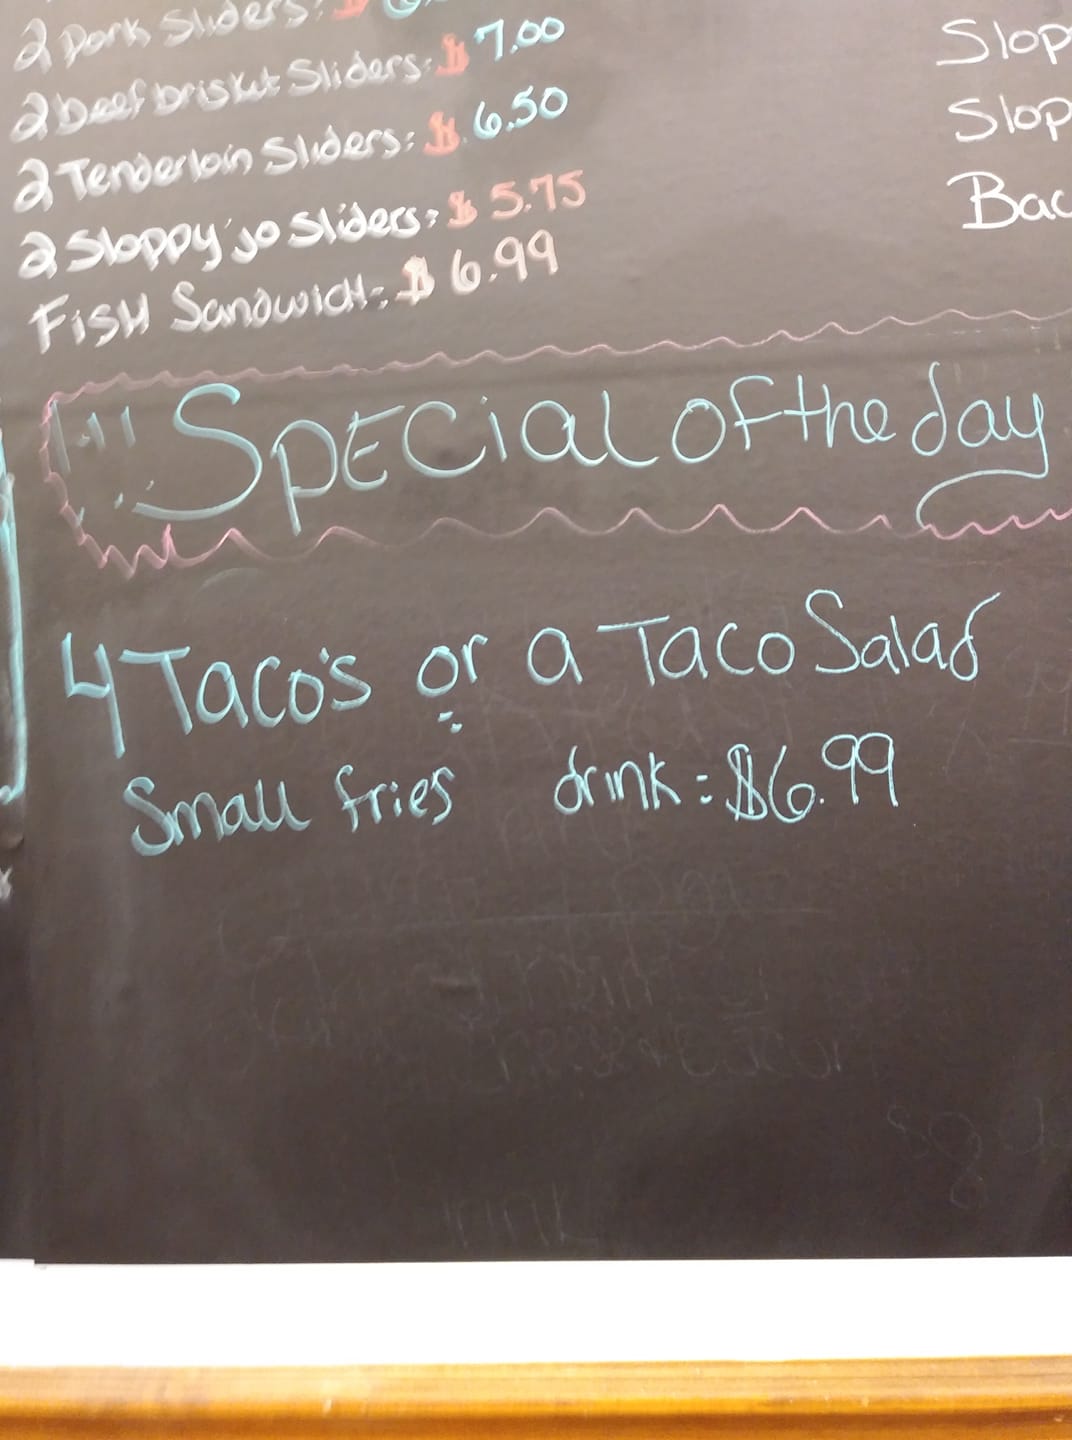 2 Pork Sliders: $
2 beef brisket Sliders: $ 7.00
2 Tenderloin Sliders: $ 6.50
2 Sloppy jo Sliders: $ 5.75
FisH SandwicH: $ 6.99
Slop
Slop
Bac
!!! SpECial Of the day
4 Taco's or a Taco Salad
Small fries drink: $6.99